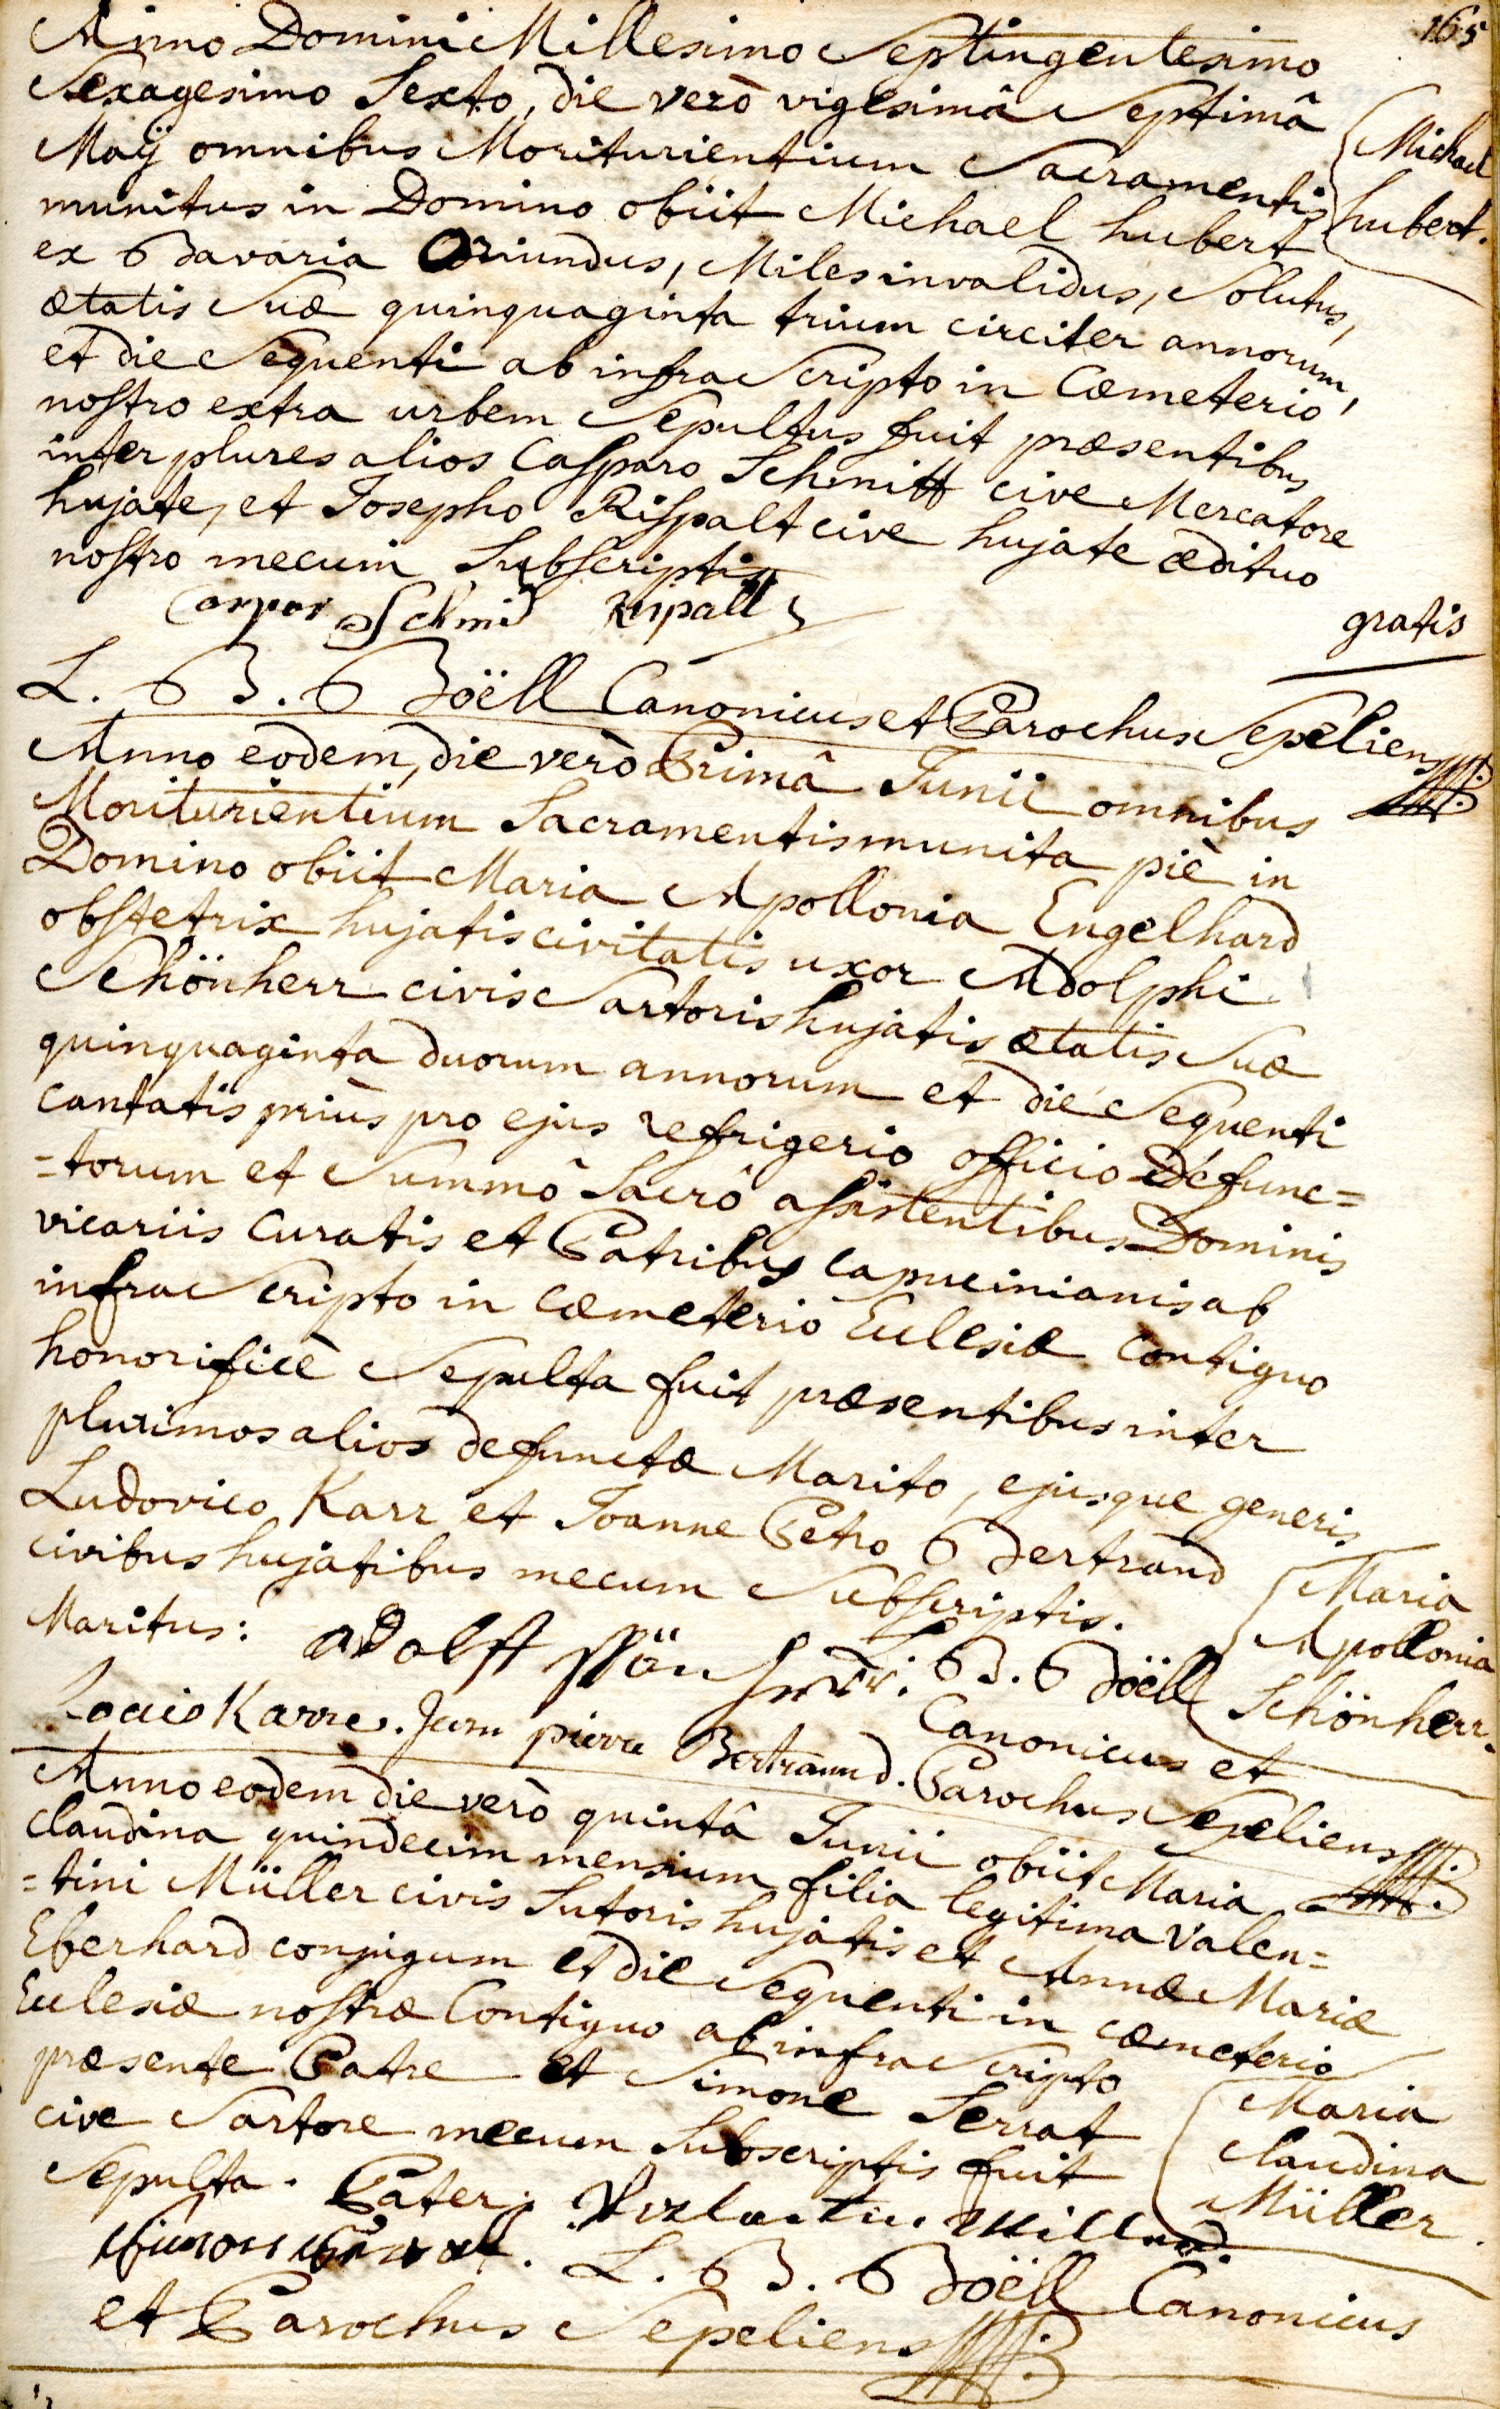 165
Anno Domini Millesimo Septingentesimo
Sexagesimo Sexto, die verò vigesimâ Septimâ
Maÿ omnibus Moriturientium Sacramentis
munitus in Domino obiit Michael hubert
ex Bavaria Oriundus, Miles invalidus, Solutus,
ætatis Suæ quinquaginta trium circiter annorum,
et die Sequenti ab infra Scripto in Cœmeterio
nostro extra urbem Sepultus fuit præsentibus
inter plures alios Casparo Schmitt cive Mercatore
hujate, et Josepho Rispalt cive hujate ædituo
nostro mecum Subscriptis
Michael
hubert.
Caspar Schmid Rispalt
gratis
L. B. Boëll Canonicus et Parochus Sepeliens
Anno eodem, die verò Primâ Junii omnibus
Moriturientium Sacramentis munita piè in
Domino obiit Maria Apollonia Engelhard
obstetrix hujatis civitatis uxor Adolphi
Schönherr civis Sartoris hujatis ætatis Suæ
quinquaginta duorum annorum et die Sequenti
cantatis priùs pro ejus refrigerio officio Defunc=
=torum et Summô Sacrô assistentibus Dominis
vicariis Curatis et Patribus capucinianis ab
infra Scripto in Cœmeterio Ecclesiæ Contiguo
honorificè Sepulta fuit præsentibus inter
plurimos alios defunctæ Marito, ejusque generis
Ludovico Karr et Joanne Petro Bertrand
civibus hujatibus mecum Subscriptis.
Maria
Apollonia
Schönherr.
Maritus: adolff schönherr. L. B. Boëll
Louis Karre. Jean pierre Bertrannd. Canonicus et
Parochus Sepeliens
Anno eodem die verò quintâ Junii obiit Maria
Claudina quindecim mensium filia legitima Valen=
=tini Müller civis Sutoris hujatis et Annæ Mariæ
Eberhard conjugum et die Sequenti in cœmeterio
Ecclesiæ nostræ Contiguo ab infra Scripto
præsente Patre et Simone Serrat
cive Sartore mecum Subscriptis fuit
Sepulta. Pater:
Maria
Claudina
Müller.
L. B. Boëll Canonicus
et Parochus Sepeliens